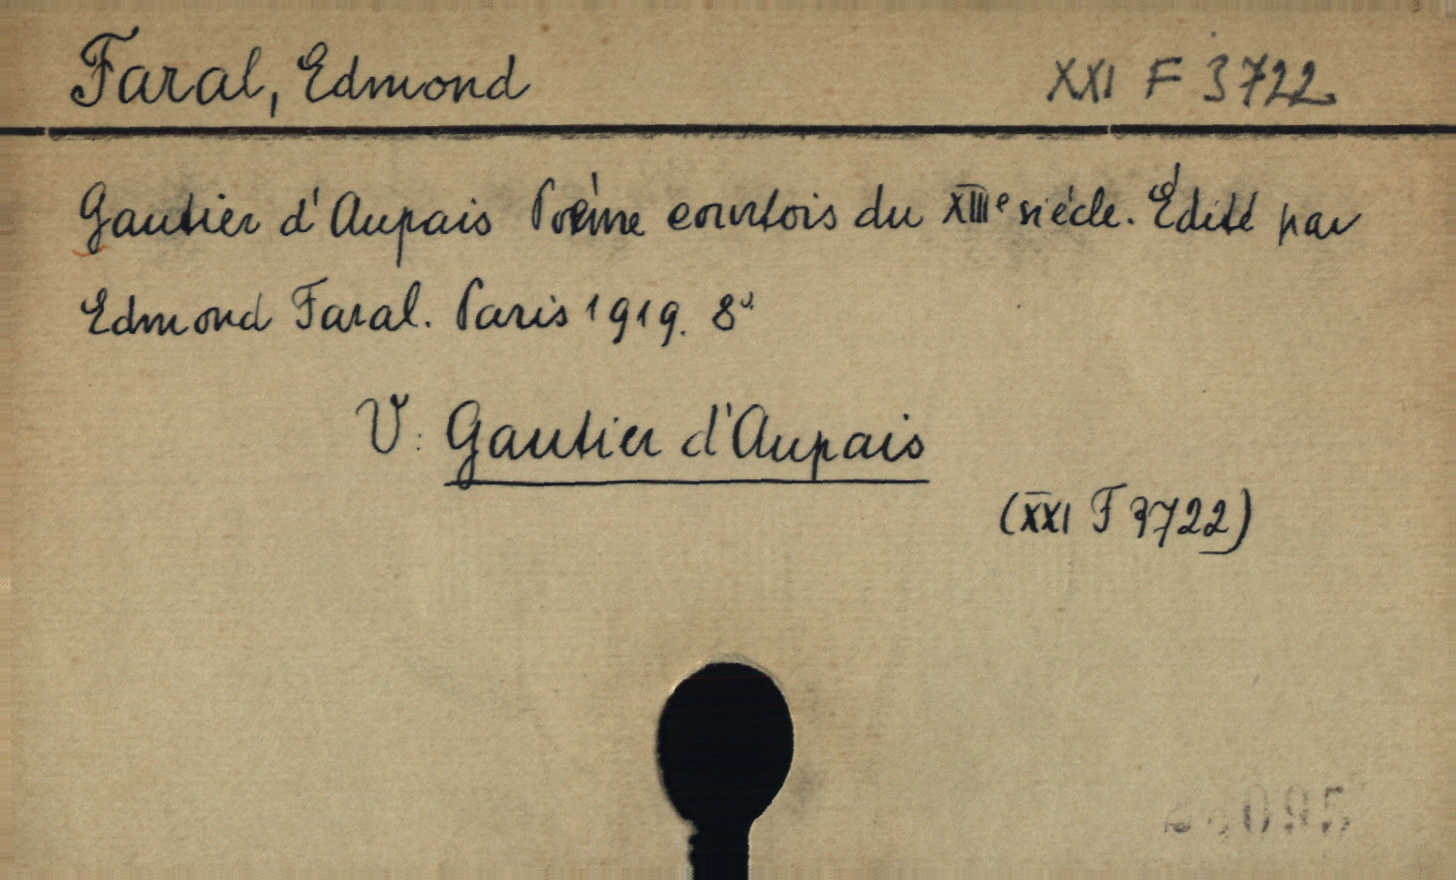 Faral, Edmond XXI F 3722
Gautier d'Aupais Poème courtois du XIIIe siécle. Édité par
Edmond Faral. Paris 1919. 8°
V: Gautier d'Aupais
(XXI F 3722)